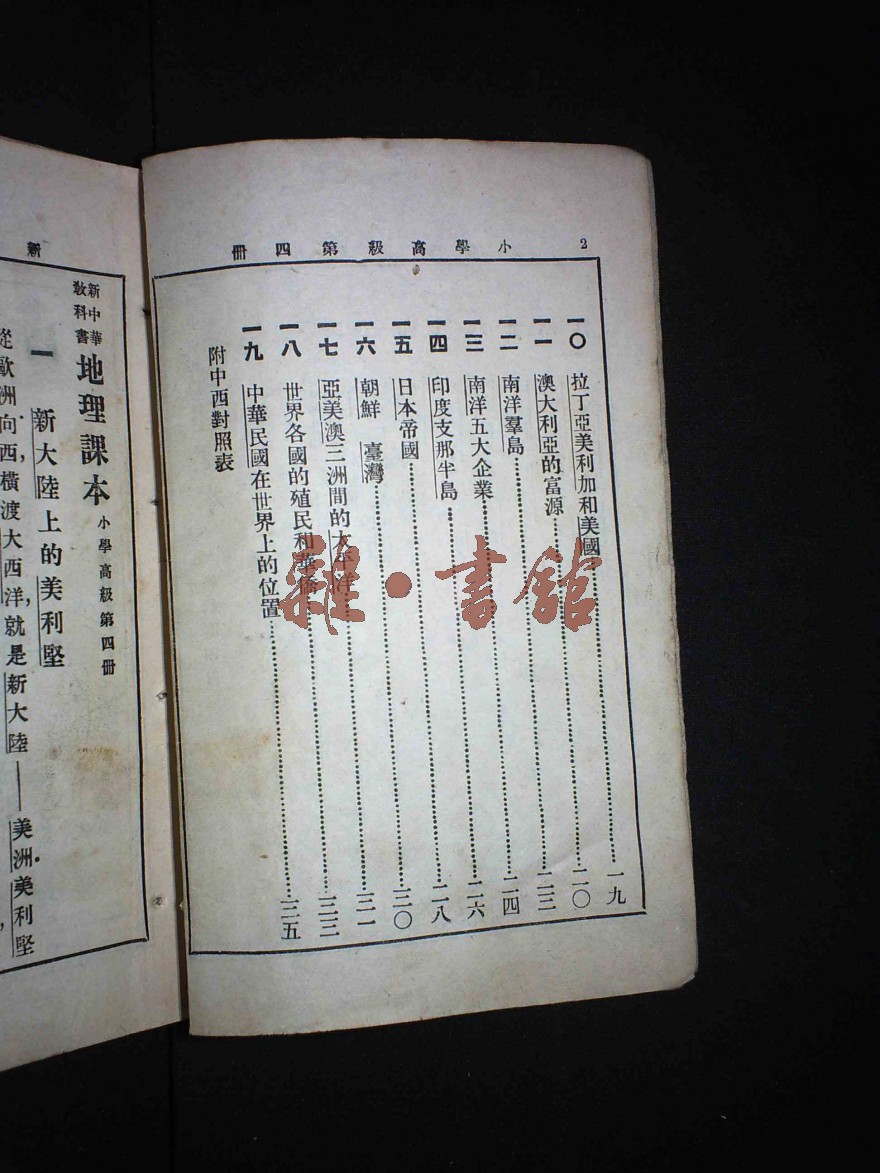 2 小學高級第四冊
一〇 拉丁亞美利加和美國……一九
一一 澳大利亞的富源……二〇
一二 南洋羣島……二三
一三 南洋五大企業……二四
一四 印度支那半島……二六
一五 日本帝國……二八
一六 朝鮮 臺灣……三〇
一七 亞美澳三洲間的太平洋……三一
一八 世界各國的殖民和華僑……三三
一九 中華民國在世界上的位置……三五
附中西對照表
雜·書館
新
新中華教科書 地理課本 小學高級第四冊
一 新大陸上的美利堅
從歐洲向西,橫渡大西洋,就是新大陸——美洲.美利堅